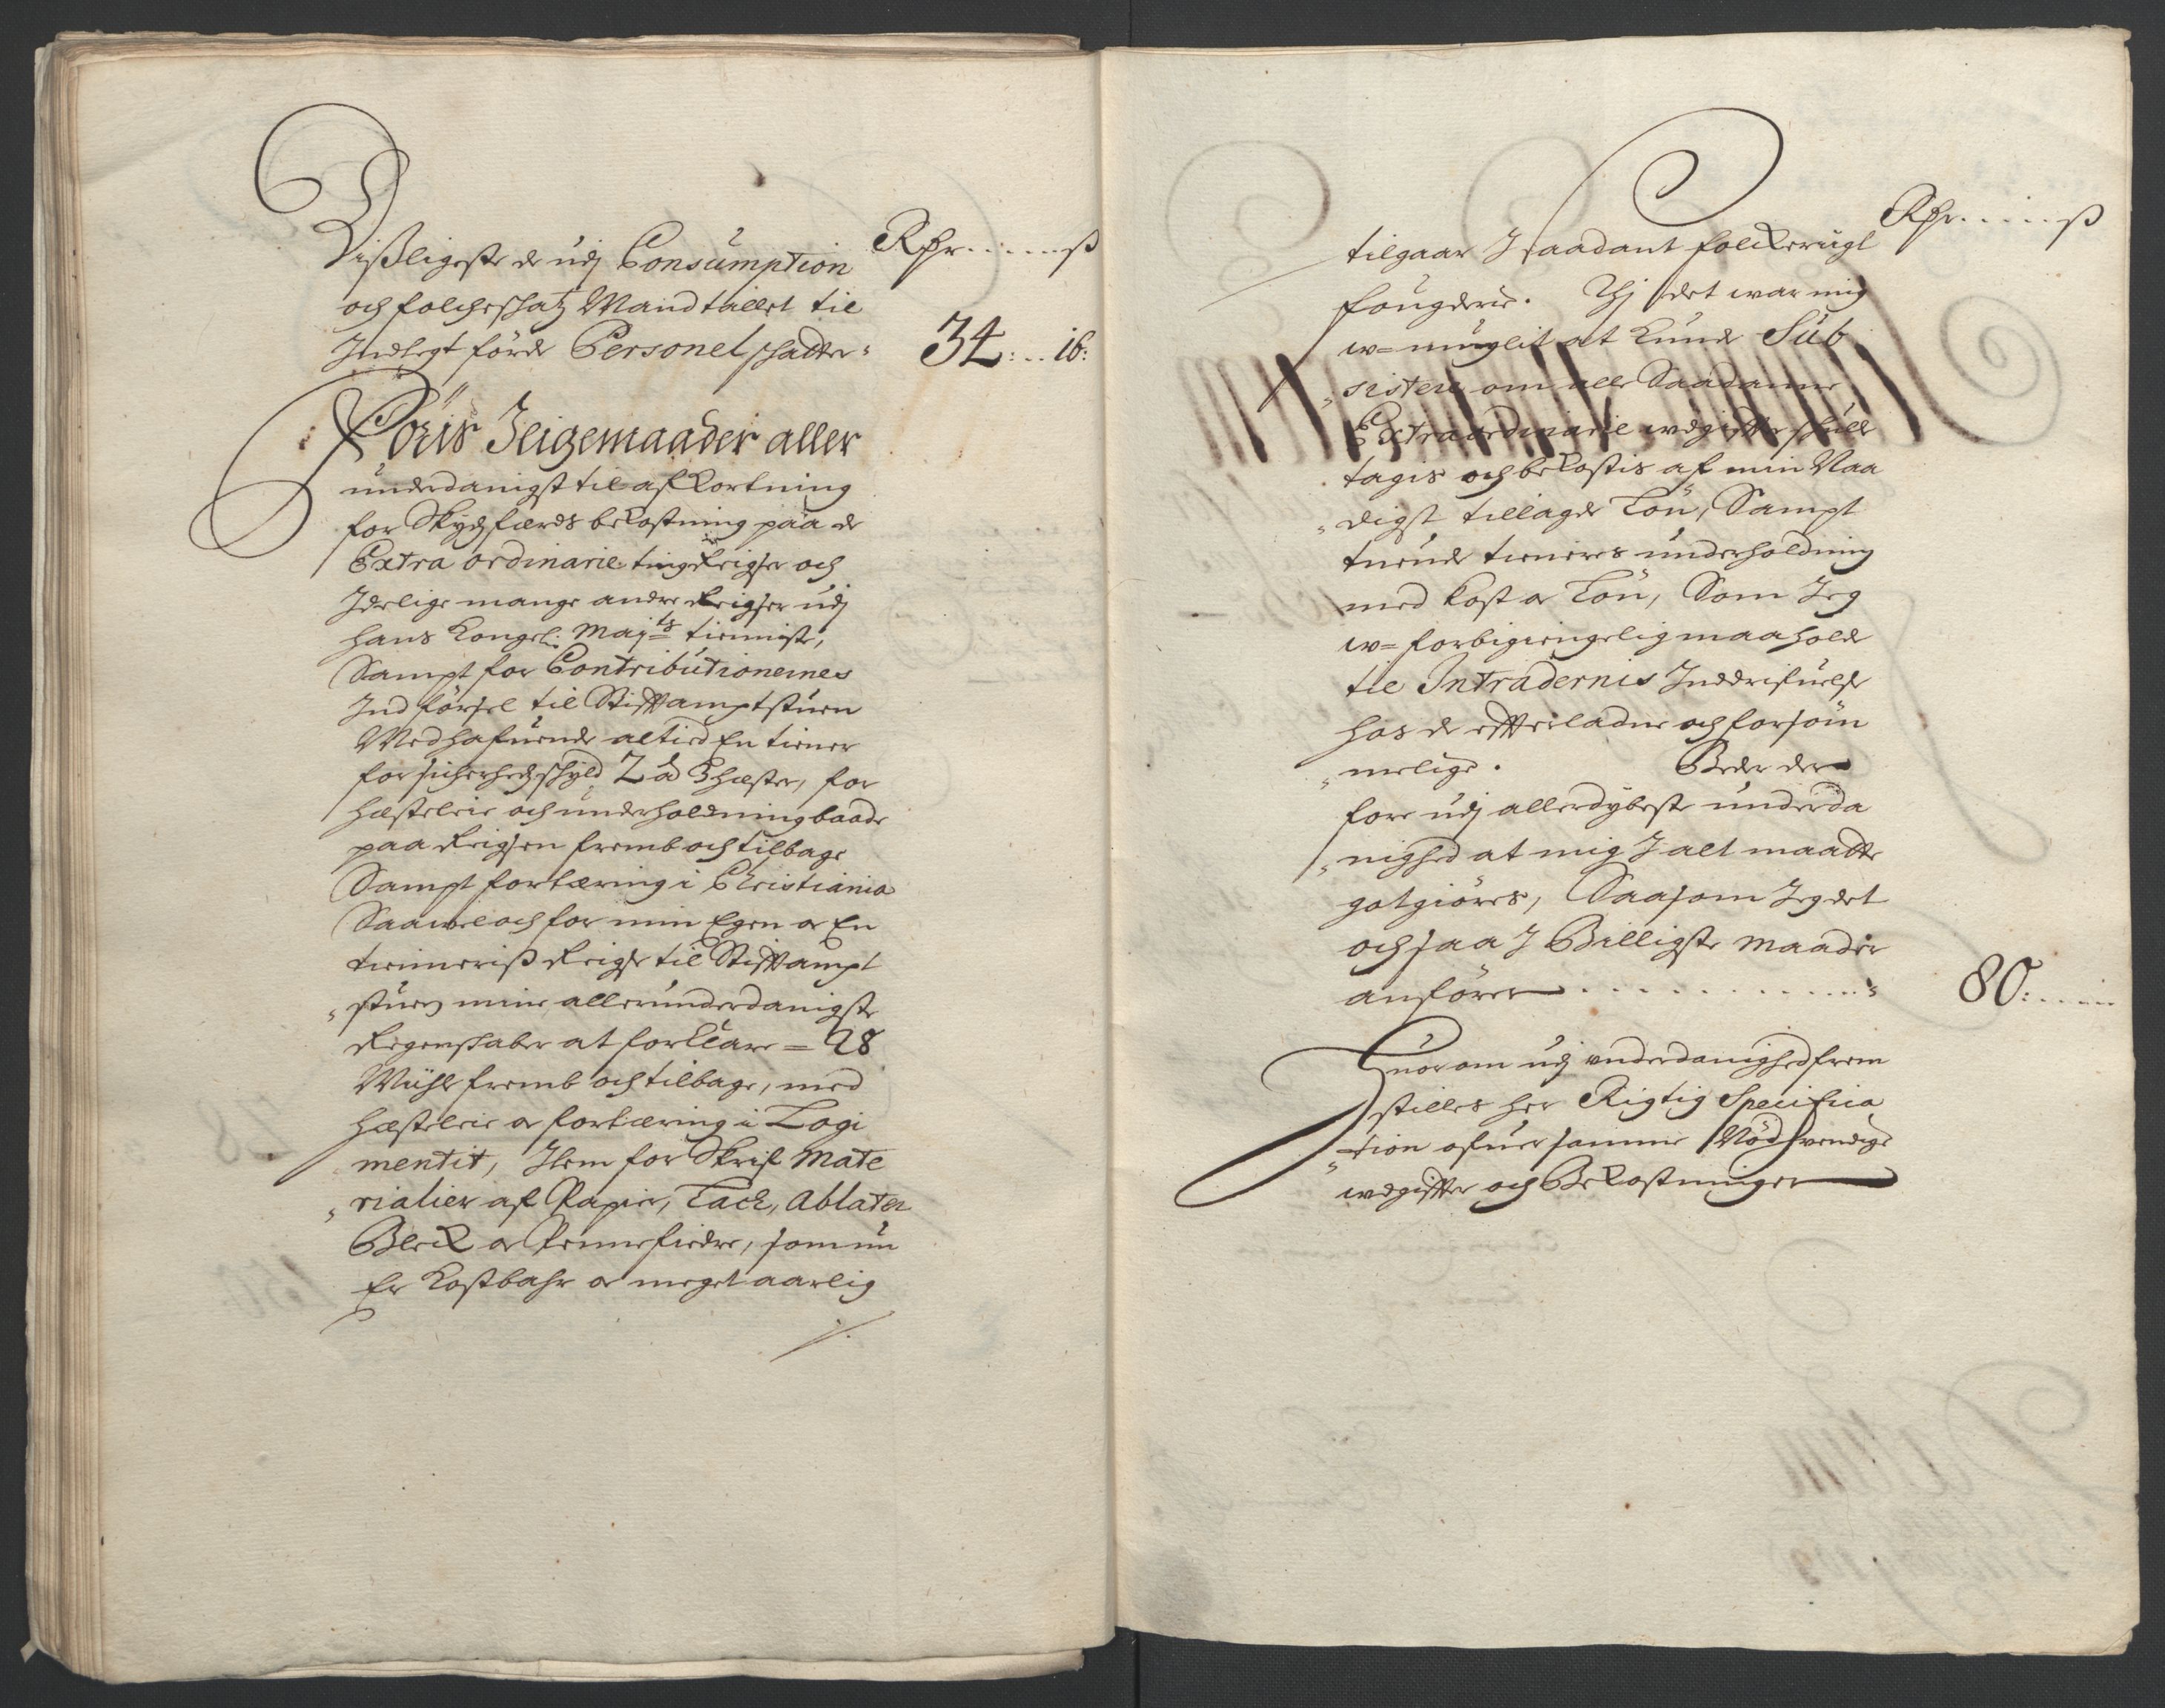 Rdr. . . . . ß
Dißligeste de udj Consumption
och folcheskatz Mandtallet til
Indlegt förde Personel skatter: 34: . . 16:
Föris Jligemaader aller
underdanigst til afkortning
for Skydsfærds bekostning paa de
Extra ordinarie ting Reigser och
Jdelige mange andre Reigser udj
hans Kongel: Maj.ts tienniste,
Sampt for Contributionernes
Jndförsel til Stifftamptstuen
Medhafuende altied En tiener
for sicherhedskyld 2 â 3 hæster, for
hæsteleie och underholdning baade
paa Reigsen fremb och tilbage
Sampt fortæring i Christiania
Saawel och for min Egen og En
tienneriß Reigse til Stifftampt
„stuen mine allerunderdanigste
Regenskaber at forklare = 28
Miihle fremb och tilbage, med
hæsteleie og fortæring i Logi
mentit, Jtem for Skrif Mate
„rialier af Papier, Lack, Ablater
Bleck og Pennefiedre, som nu
Er Kostbahr og meget aarlig
./.
Rdr. . . . . ß
tilgaar J saadant folckerügt
fougderie. Thj det war mig
w=muglit at kunde Sub
„sistere om alle Saadanne
Extraordinarie udgiffter skulle
tagis och bekostis af min Naa
„digst tillagde Lön, Sampt
tuende tieneres underholdning
med kost og Lön, Som Jeg
w=forbigiengelig maa holde
til Intradernis Jnddrifuelse
hos de efterladne och forsöm
„melige. Beder der
fore udj allerdybeste underda
„nighed at mig J alt maatte
gotgiöres, Saasom Jeg det
och saa J Billigste Maader
anförer . . . . . . . . . . : 80: . . . .
Huorom udj underdanighed frem
stilles her Rigtig Specifica
„tion ofuer samme Nödhwendige
udgiffter och Bekostninger